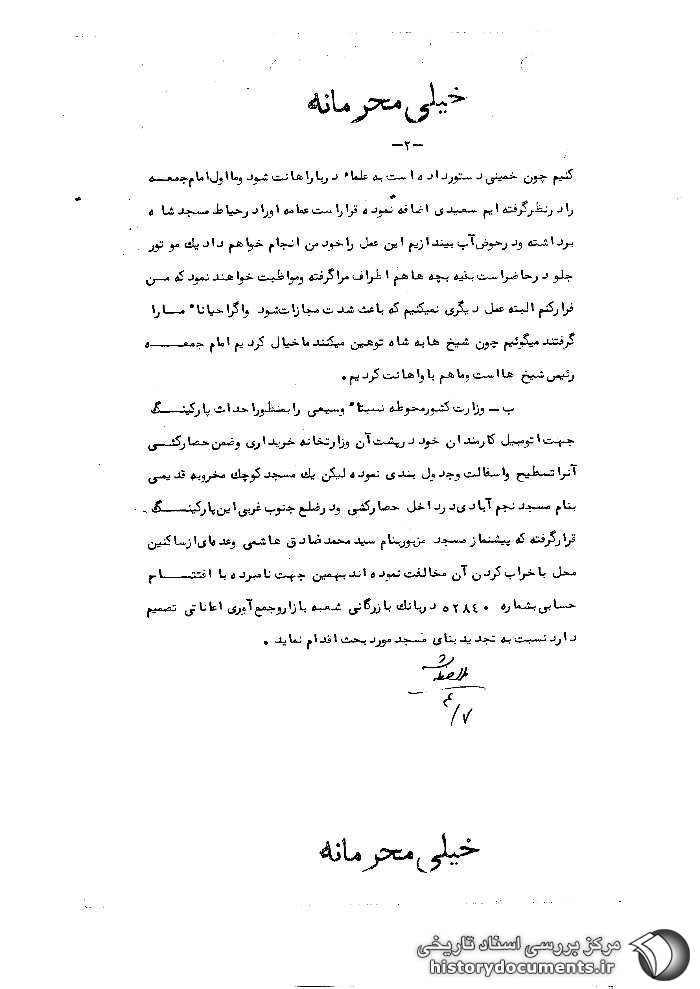 خیلی محرمانه
-۲-
کنیم چون خمینی دستورداده است به علماء درباراهانت شود ومااول امام جمعـــه
رادرنظرگرفته ایم سعیدی اضافه نموده قراراست عمامه اورادرحیاط مسجدشاه
برداشته ودرحوض آب بیندازیم این عمل راخودمن انجام خواهم دادیك موتور
جلو درحاضراست بقیه بچه هاهم اطراف مراگرفته ومواظبت خواهندنمودکه مـن
فرارکنم البته عمل دیگری نمیکنیم که باعث شدت مجازات‌شود واگراحیاناً مـــارا
گرفتند میگوئیم چون شیخ هابه شاه توهین میکنند ماخیال کردیم امام جمعـــــه
رئیس شیخ هااست وماهم باواهانت کردیم .
ب - وزارت کشورمحوطه نسبتاً وسیعی رابمنظوراحداث پارکینـــگ
جهت اتومبیل کارمندان خود درپشت آن وزارتخانه خریداری وضمن حصارکشـی
آنراتسطیح واسفالت وجدول بندی نموده لیکن یك مسجدکوچك مخروبه قدیمی
بنام مسجد نجم آبادی‌درداخل حصارکشی ودرضلع جنوب غربی این پارکینـــگ
قرارگرفته که پیشنمازمسجد مزبوربنام سیدمحمدصادق هاشمی وعده‌ای‌ازساکنین
محل باخراب کردن آن مخالفت نموده اندبهمین جهت نامبرده با افتتـــــاح
حسابی بشماره ۵۲۸۴۰ دربانك بازرگانی شعبه بازاروجمع آوری اعاناتی تصمیم
داردنسبت به تجدیدبنای مسجد مورد بحث اقدام نماید .
۷/
خیلی محرمانه
مرکز بررسی اسناد تاریخی
historydocuments.ir